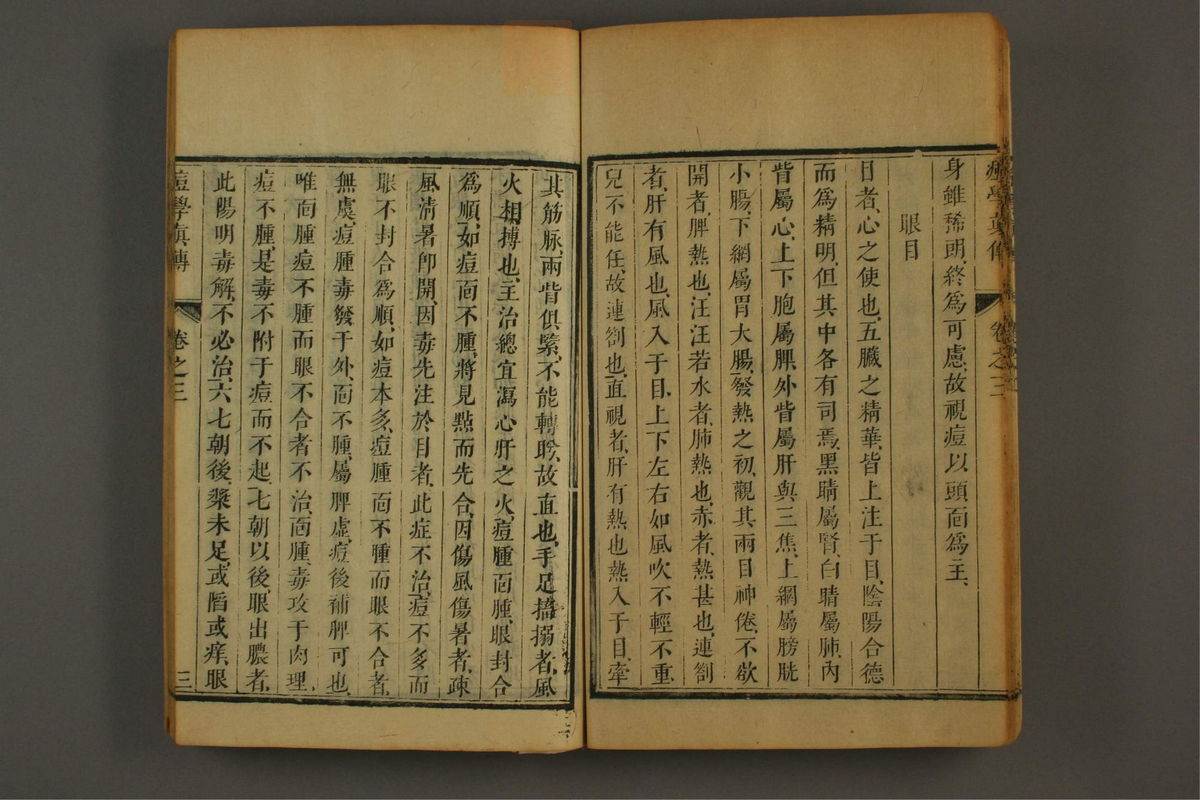 痘學真傳 卷之三
身雖稀朗、終爲可慮、故視痘以頭面爲主、
眼目
目者、心之使也、五臟之精華、皆上注于目、陰陽合德
而爲精明、但其中各有司焉、黑睛屬腎、白睛屬肺、內
眥屬心、上下胞屬脾、外眥屬肝與三焦、上網屬膀胱
小腸、下網屬胃大腸、發熱之初、觀其兩目神倦、不欲
開者、脾熱也、汪汪若水者、肺熱也、赤者、熱甚也、連劄
者、肝有風也、風入于目、上下左右如風吹不輕不重
兒不能任、故連劄也、直視者、肝有熱也、熱入于目、牽
其筋脉、兩眥俱緊、不能轉盻、故直也、手足搐搦者、風
火相搏也、主治總宜瀉心肝之火、痘腫面腫、眼封合
爲順、如痘面不腫、將見點而先合、因傷風傷暑者、疎
風清暑卽開、因毒先注於目者、此症不治、痘不多而
眼不封合爲順、如痘本多、痘腫面不腫而眼不合者、
無虞、痘腫毒發于外、面不腫、屬脾虛、痘後補脾可也、
唯面腫痘不腫而眼不合者不治、面腫、毒攻于肉理、
痘不腫、是毒不附于痘而不起、七朝以後、眼出膿者、
此陽明毒解、不必治、六七朝後、漿未足、或陷或痒、眼
痘學真傳 卷之三 三